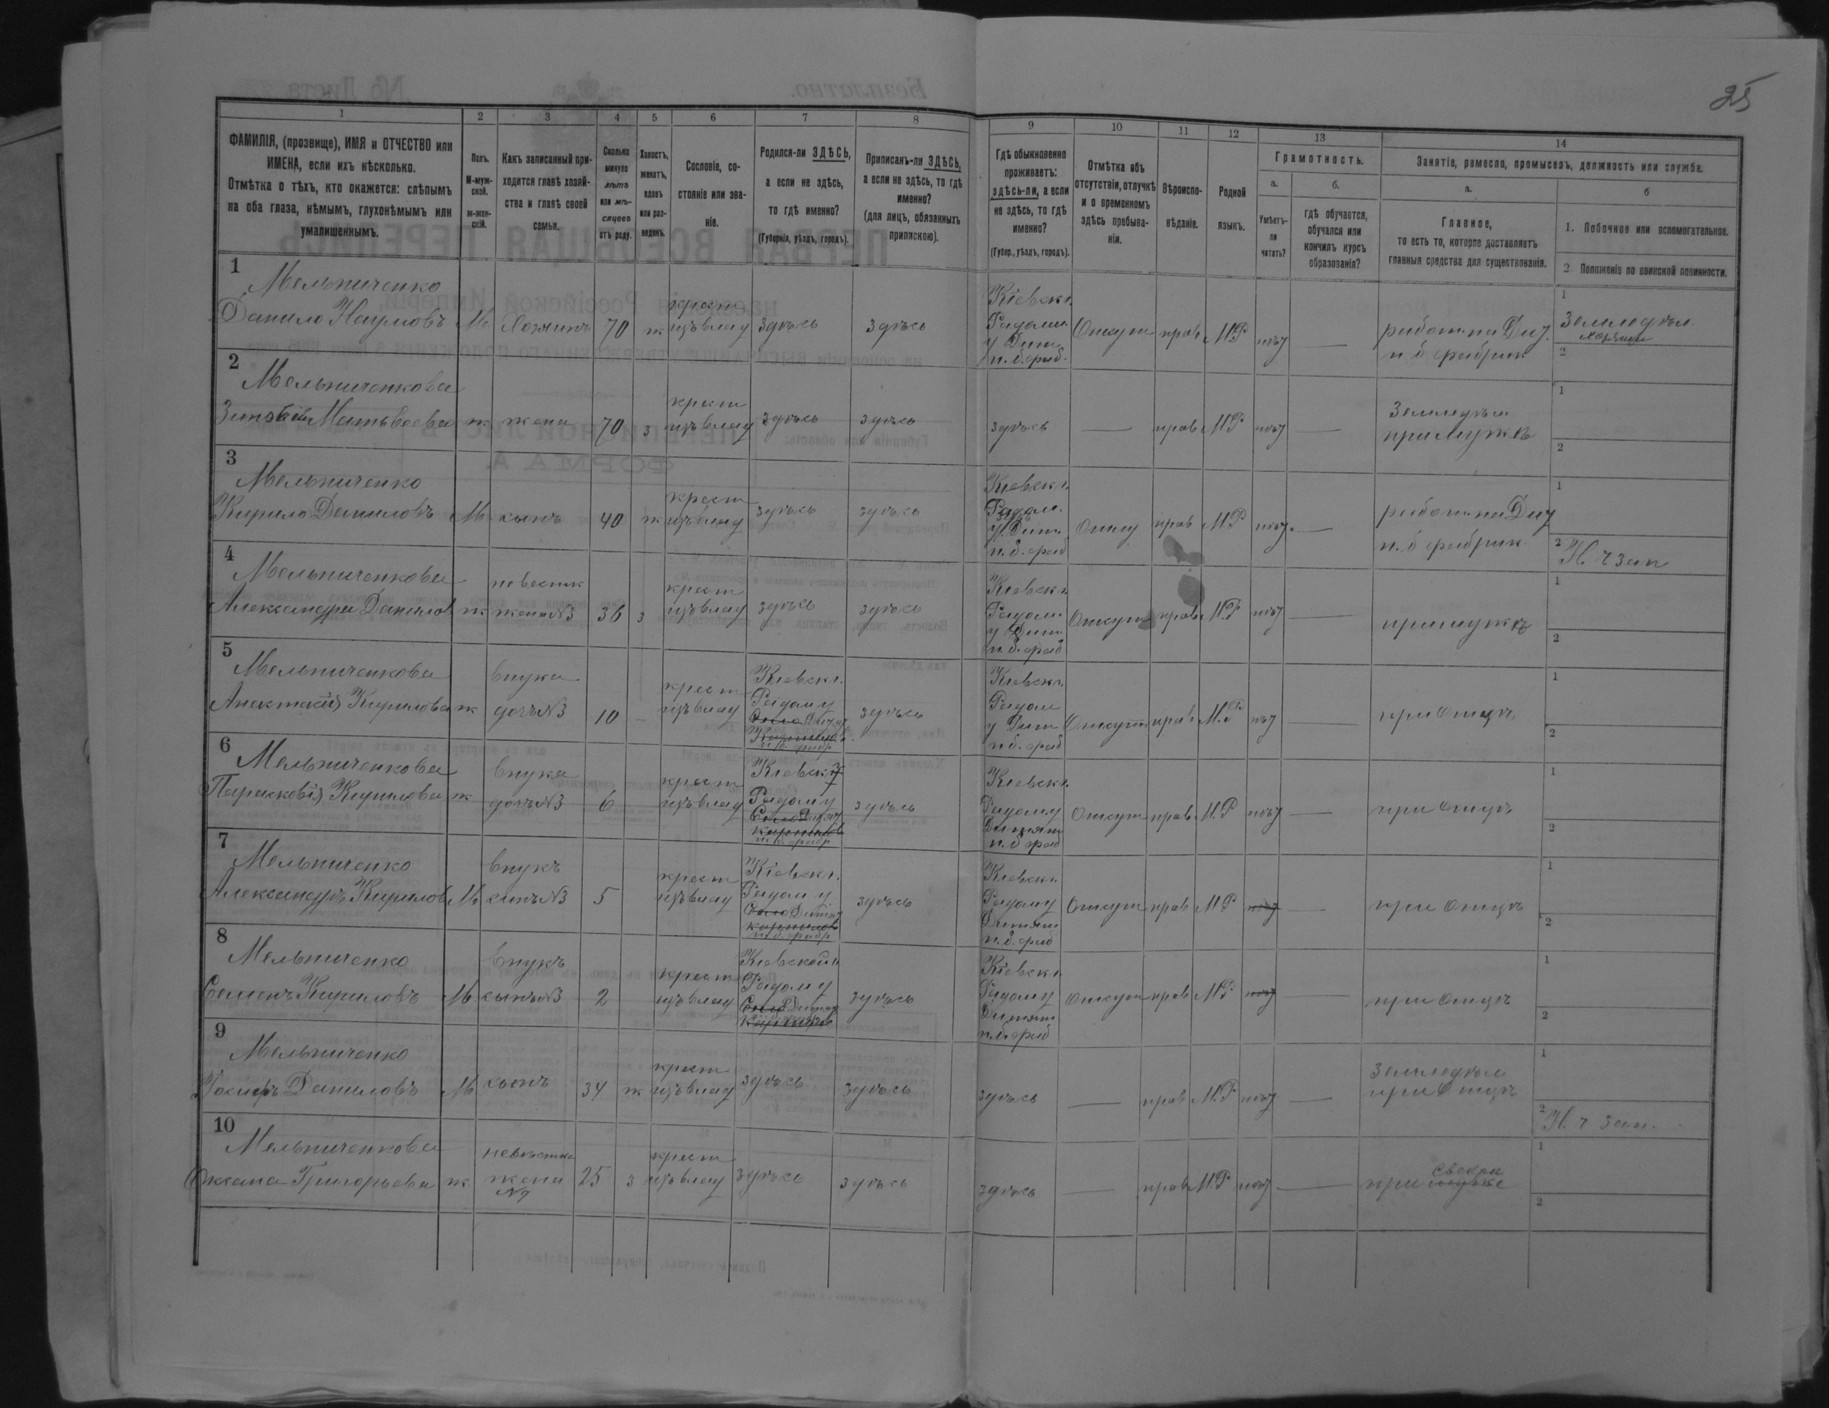 25
1 2 3 4 5 6 7 8 9 10 11 12 13 14
ФАМИЛІЯ, (прозвище), ИМЯ и ОТЧЕСТВО или
ИМЕНА, если ихъ нѣсколько.
Отмѣтка о тѣхъ, кто окажется: слѣпымъ
на оба глаза, нѣмымъ, глухонѣмымъ или
умалишеннымъ.
Полъ.
М-муж-
ской.
ж-жен-
скій.
Какъ записанный при-
ходится главѣ хозяй-
ства и главѣ своей
семьи.
Сколько
минуло
лѣтъ
или мѣ-
сяцевъ
отъ роду.
Холостъ,
женатъ,
вдовъ
или раз-
веденъ.
Сословіе, со-
стояніе или зва-
ніе.
Родился-ли ЗДѢСЬ,
а если не здѣсь,
то гдѣ именно?
(Губернія, уѣздъ, городъ).
Приписанъ-ли ЗДѢСЬ,
а если не здѣсь, то гдѣ
именно?
(для лицъ, обязанныхъ
припискою).
Гдѣ обыкновенно
проживаетъ:
здѣсь-ли, а если
не здѣсь, то гдѣ
именно?
(Губер., уѣздъ, городъ).
Отмѣтка объ
отсутствіи, отлучкѣ
и о временномъ
здѣсь пребыва-
ніи.
Вѣроиспо-
вѣданіе.
Родной
языкъ.
Грамотность.
а.
Умѣетъ-
ли
читать?
б.
гдѣ обучается,
обучался или
кончилъ курсъ
образованія?
Занятіе, ремесло, промыселъ, должность или служба.
а.
Главное,
то есть то, которое доставляетъ
главныя средства для существованія.
б
1. Побочное или вспомогательное.
2. Положеніе по воинской повинности.
1
Мельниченко
Данило Наумовъ М Хозяинъ 70 ж
крест
изъ влад здѣсь здѣсь
Кіевск г.
Радом.
у Дит.
п. б. фаб. Отсут прав М.Р нѣт —
работ. на Дит.
п б фабрик
1 Земледѣл.
хозяин
2
2
Мельниченкова
Зиновія Матвѣева ж жена 70 з
крест
изъ влад здѣсь здѣсь здѣсь — прав М.Р нѣт —
Земледѣл
при Мужѣ
1
2
3
Мельниченко
Кирило Даниловъ М сынъ 40 ж
крест
изъ влад здѣсь здѣсь
Кіевск г.
Радом.
у Дит.
п. б. фаб Отсу прав М.Р нѣт —
работ. на Дит
п. б фабрик
1
2 Н. ч зап
4
Мельниченкова
Александра Данилов ж
невестк
жена №3 36 з
крест
изъ влад здѣсь здѣсь
Кіевск г.
Радом
у Дит.
п б. фаб Отсут прав М.Р нѣт — при мужѣ
1
2
5
Мельниченкова
Анастасія Кирилова ж
внука
дочь №3 10 —
крест
изъ влад
Кіевск г.
Радом у
п. б. фабр здѣсь
Кіевск г.
Радом
у Дит
п б. фаб Отсут прав М.Р нѣт — при отцѣ
1
2
6
Мельниченкова
Парасковія Кирилова ж
внука
дочь №3 6
крест
изъ влад
Кіевск г
Радом у
п. б. фабр здѣсь
Кіевск г.
Радом у
Дитят
п. б фаб Отсут прав М.Р нѣт — при отцѣ
1
2
7
Мельниченко
Александръ Кирилов М
внукъ
сынъ №3 5
крест
изъ влад
Кіевск г.
Радом у
п. б. фабр здѣсь
Кіевск г.
Радом у
Дитят
п. б. фаб Отсут прав М.Р нѣт — при отцѣ
1
2
8
Мельниченко
Семенъ Кириловъ М
внукъ
сынъ №3 2
крест
изъ влад
Кіевской г
Радом у
здѣсь
Кіевск г.
Радом у
Дитят
п. б. фаб Отсут прав М.Р нѣт — при отцѣ
1
2
9
Мельниченко
Іосифъ Даниловъ М сынъ 34 ж
крест
изъ влад здѣсь здѣсь здѣсь — прав М.Р нѣт —
Земледѣл
при Отцѣ
1
2 Н. ч зап.
10
Мельниченкова
Оксана Григорьева ж
невѣстка
жена
№9 25 з
крест
изъ влад здѣсь здѣсь здѣсь — прав М.Р нѣт —
при свекри
1
2